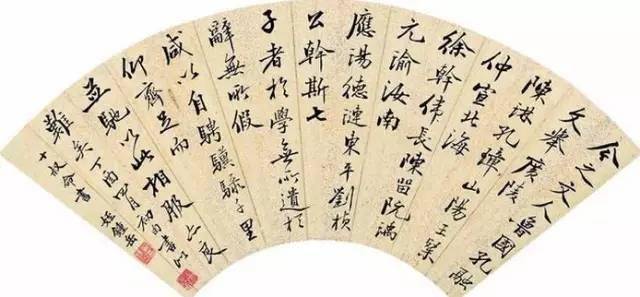 今之文人魯國孔融
文舉廣陵
陳琳孔璋山陽王粲
仲宣北海
徐幹偉長陳留阮瑀
元渝汝南
應湯德漣東平劉楨
公幹斯七
子者於學無所遺於
辭無所假
咸以自騁驥騄千里
仰齊足而
並馳以此相服亦良
難矣丁酉四月初書
叔命書姪